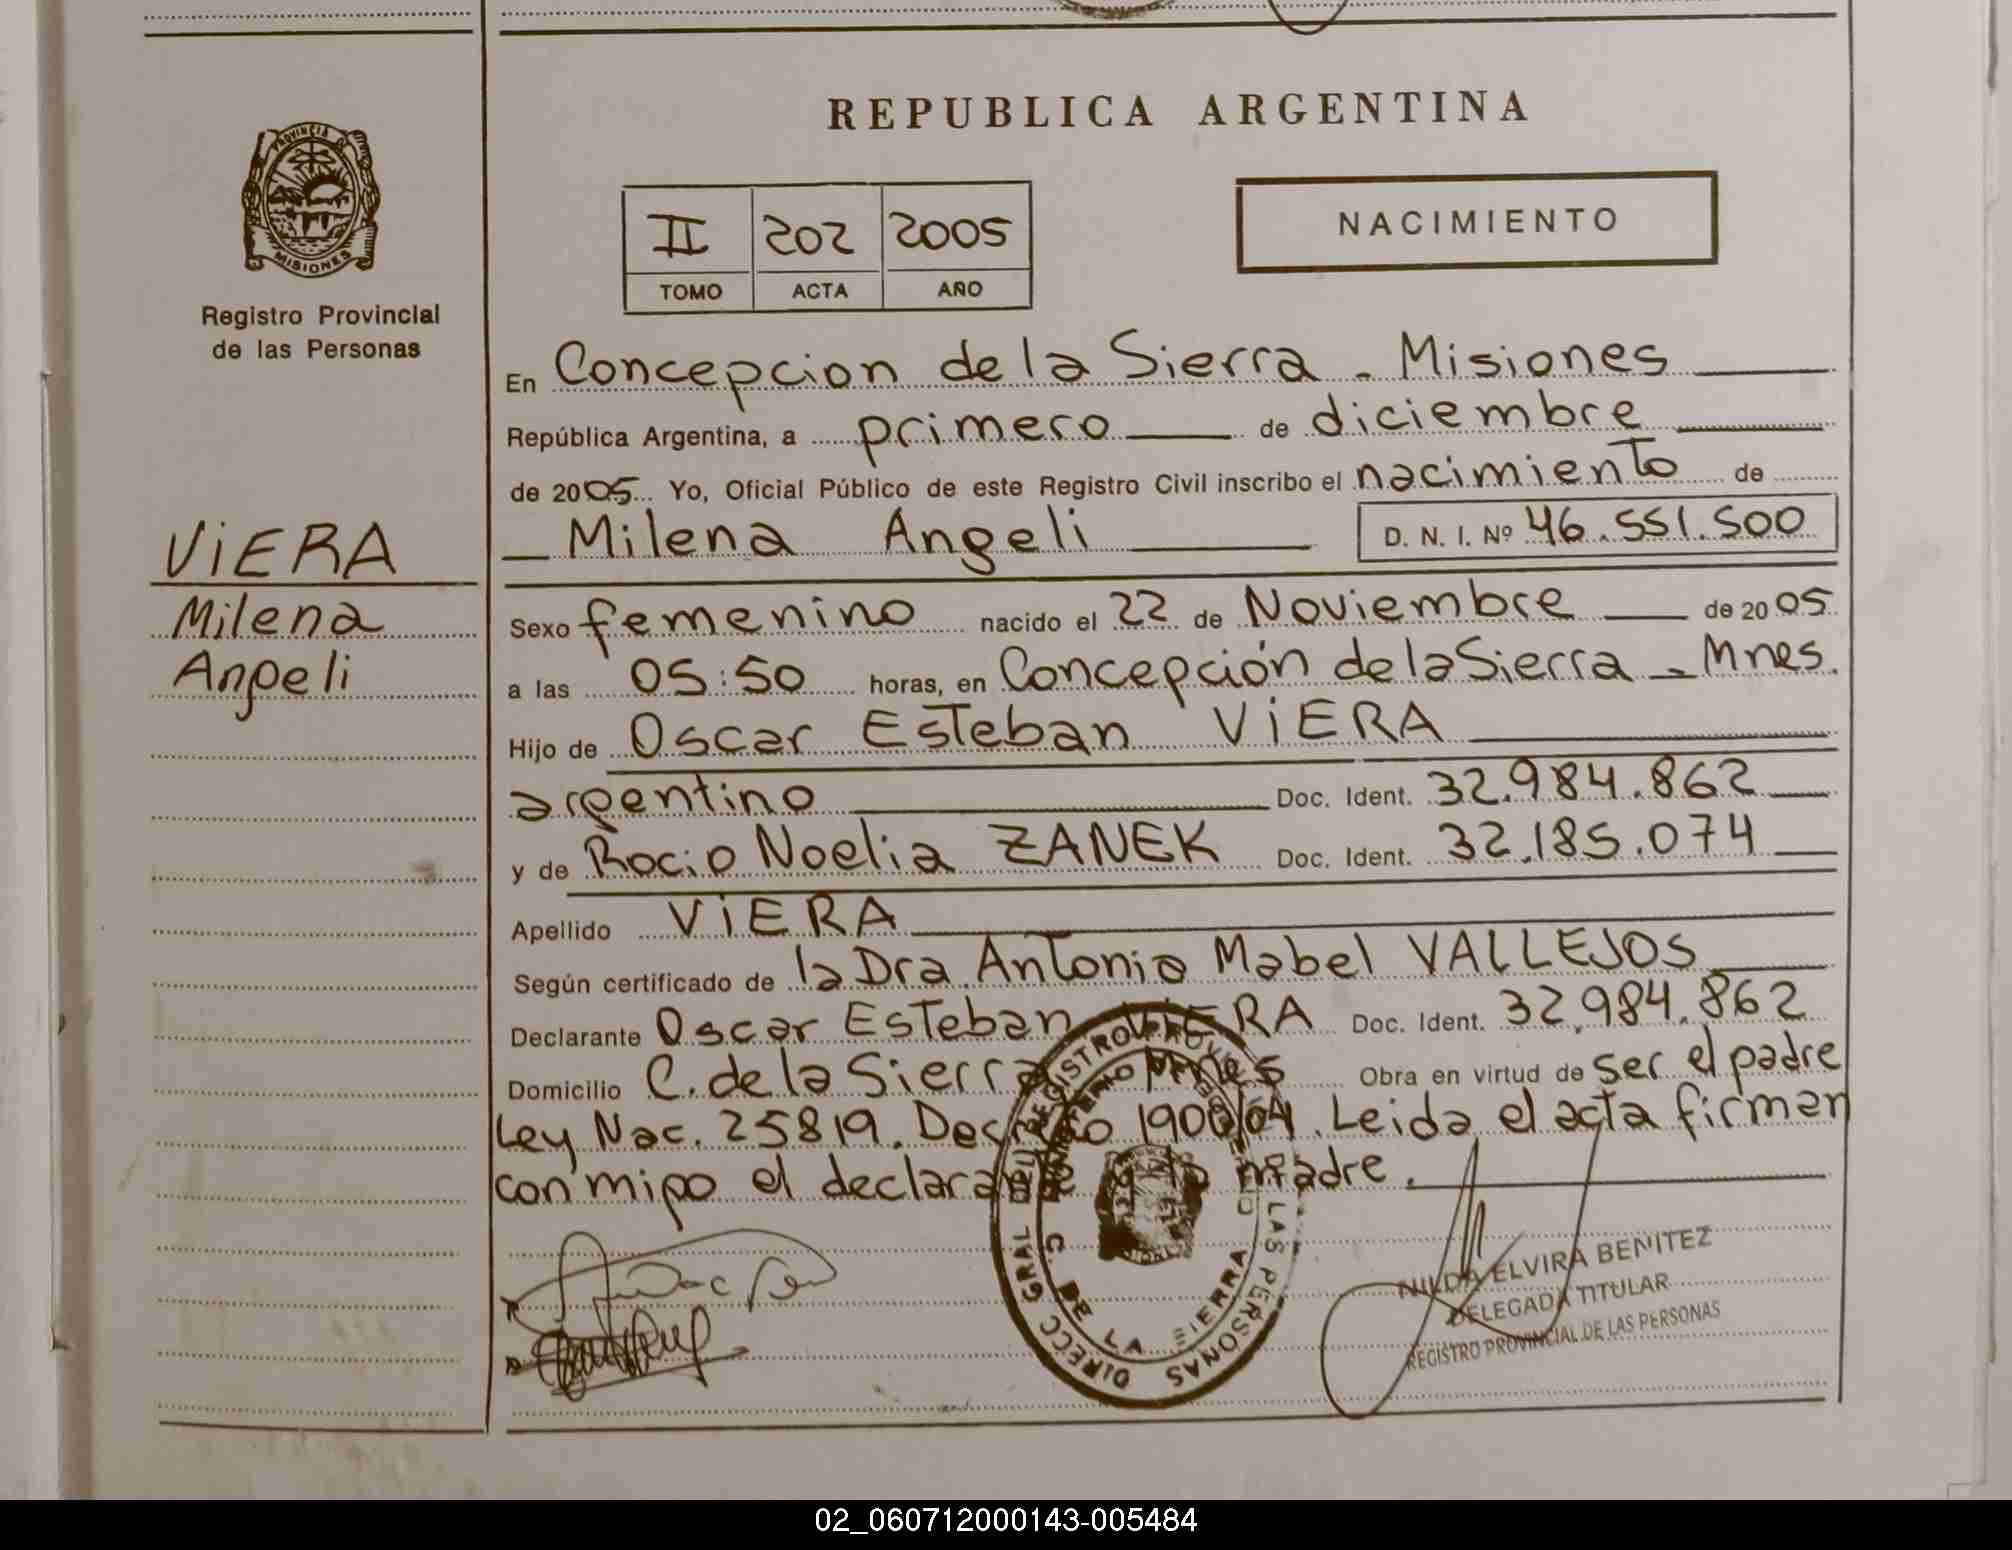 REPUBLICA ARGENTINA
PROVINCIA DE
MISIONES
Registro Provincial
de las Personas
II 202 2005
TOMO ACTA AÑO
NACIMIENTO
En Concepcion de la Sierra - Misiones
República Argentina, a primero de diciembre
de 2005 Yo, Oficial Público de este Registro Civil inscribo el nacimiento de
Milena Angeli D. N. I. Nº 46.551.500
VIERA
Milena
Angeli
Sexo femenino nacido el 22 de Noviembre de 2005
a las 05:50 horas, en Concepción de la Sierra - Mnes.
Hijo de Oscar Esteban VIERA
argentino Doc. Ident. 32.984.862
y de Rocio Noelia ZANEK Doc. Ident. 32.185.074
Apellido VIERA
Según certificado de la Dra Antonia Mabel VALLEJOS
Declarante Oscar Esteban VIERA Doc. Ident. 32.984.862
Domicilio C. de la Sierra Mnes Obra en virtud de ser el padre
Ley Nac. 25819. Decreto 1900/04. Leida el acta firman
conmigo el declarante y la madre.
DIRECC GRAL DEL REGISTRO PROV DE LAS PERSONAS
C. DE LA SIERRA
NILDA ELVIRA BENITEZ
DELEGADA TITULAR
REGISTRO PROVINCIAL DE LAS PERSONAS
02_060712000143-005484